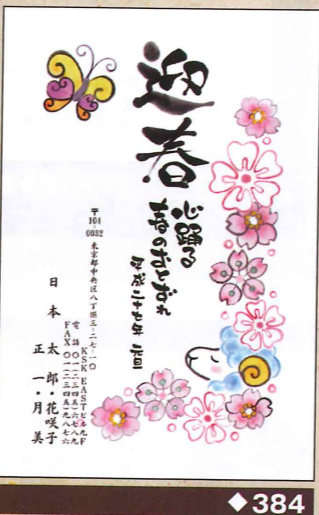 迎春
心踊る
春のおとずれ
平成二十七年 元旦
〒104-0032 東京都中央区八丁堀三-二七-一〇
KSK EASTビル九F
電話〇一(二三四五)六七八九
FAX〇一(二三四五)九八七六
日本太郎・花咲子
正一・月美
◆384